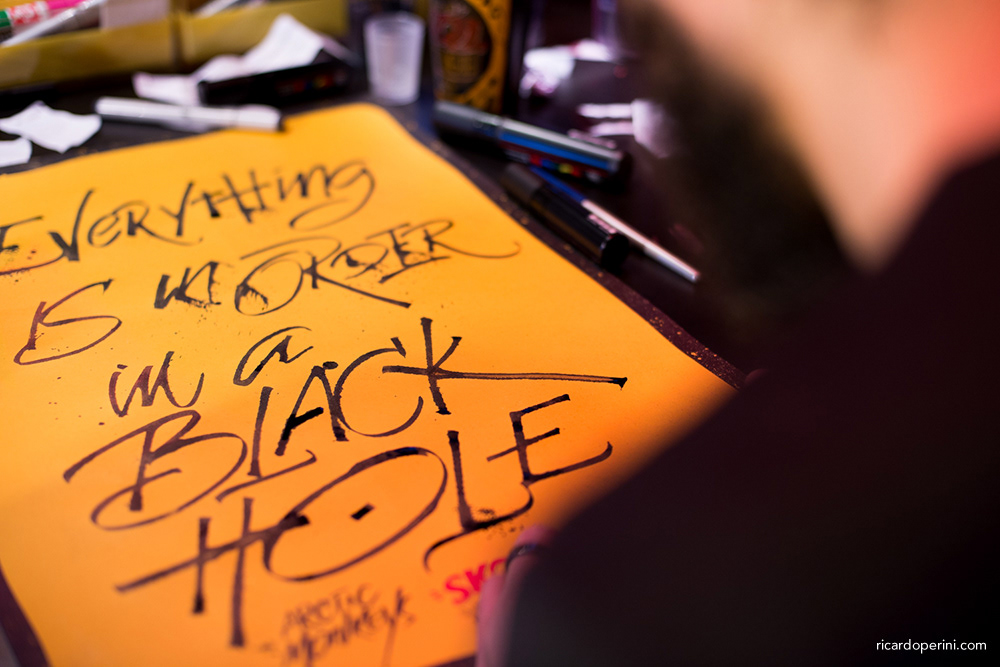 EVERYTHing
IS in ORDER
in a
BLACK
HOLE
ARCTIC
MONKEYS
ricardoperini.com